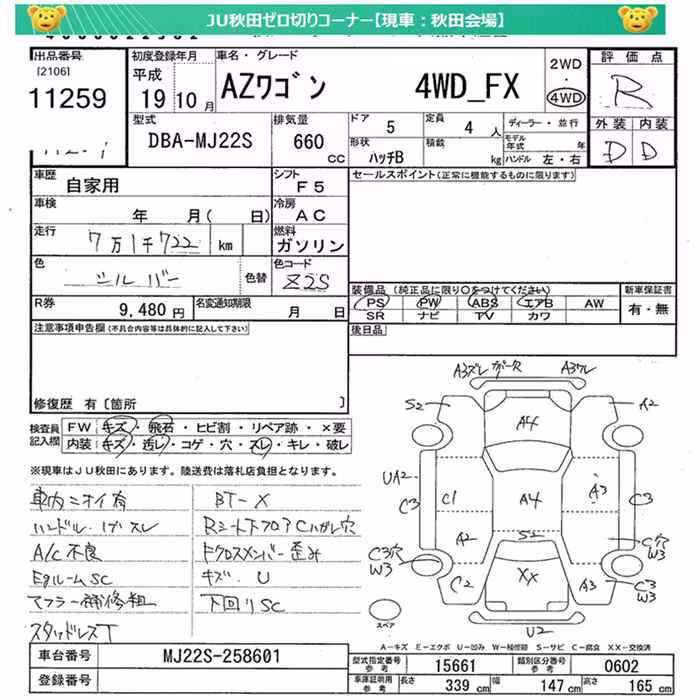 JU秋田ゼロ切りコーナー【現車：秋田会場】
出品番号 初度登録年月 車名・グレード 2WD・4WD 評価点
[2106] 平成
11259 19年10月 AZワゴン 4WD_FX R
型式 排気量 ドア 5 定員 4人 ディーラー・並行 外装 内装
DBA-MJ22S 660cc 形状 ハッチB 積載 kg モデル年式 年 ハンドル 左・右 D D
車歴 自家用 シフト F5 セールスポイント(正常に機能するものに限ります)
車検 年 月( 日) 冷房 AC
走行 7万1千722 km 燃料 ガソリン
色 シルバー 色替 色コード Z2S
装備品 (純正品に限り○をつけてください) 新車保証書
R券 9,480円 名変通知期限 月 日 PS PW ABS エアB AW 有・無
SR ナビ TV カワ
注意事項申告欄(不具合内容等は具体的に記入して下さい) 後日品
修復歴 有[箇所 ]
検査員記入欄 FW キズ・飛石・ヒビ割・リペア跡・×要
内装 キズ・汚レ・コゲ・穴・スレ・キレ・破レ
※現車はJU秋田にあります。陸送費は落札店負担となります。
車内ニオイ有 BT-X
ハンドル・ノブスレ Rシート下フロアCハガレ穴
A/C不良 Fクロスメンバー歪み
Egルーム SC キズ・U
マフラー補修粗 下回りSC
スタッドレスT
A3ズレ ガボ欠 A3ワレ
S2 A4 A2
UA2 C3 C1 A4 A3 C3
A2 S2 C穴 W3
C3穴 W3 C2 XX A3 C3 W3
スペア U2
A-キズ E-エクボ U-凹み W-補修跡 S-サビ C-腐食 XX-交換済
車台番号 MJ22S-258601 型式指定番号 参考 15661 類別区分番号 参考 0602
登録番号 車庫証明用 参考 長さ 339cm 幅 147cm 高さ 165cm